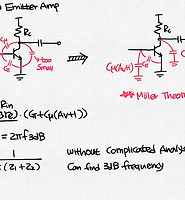 Emitter Amp
Rc
Rc
Cμ
Cπ
too
Small
Cμ(Av+1)
Cπ
Miller Theor
Rin
· (Cπ+Cμ(Av+1))
= 2πf3dB
1
(Z1+Z2)
without Complicated Analys
Can find 3dB frequency